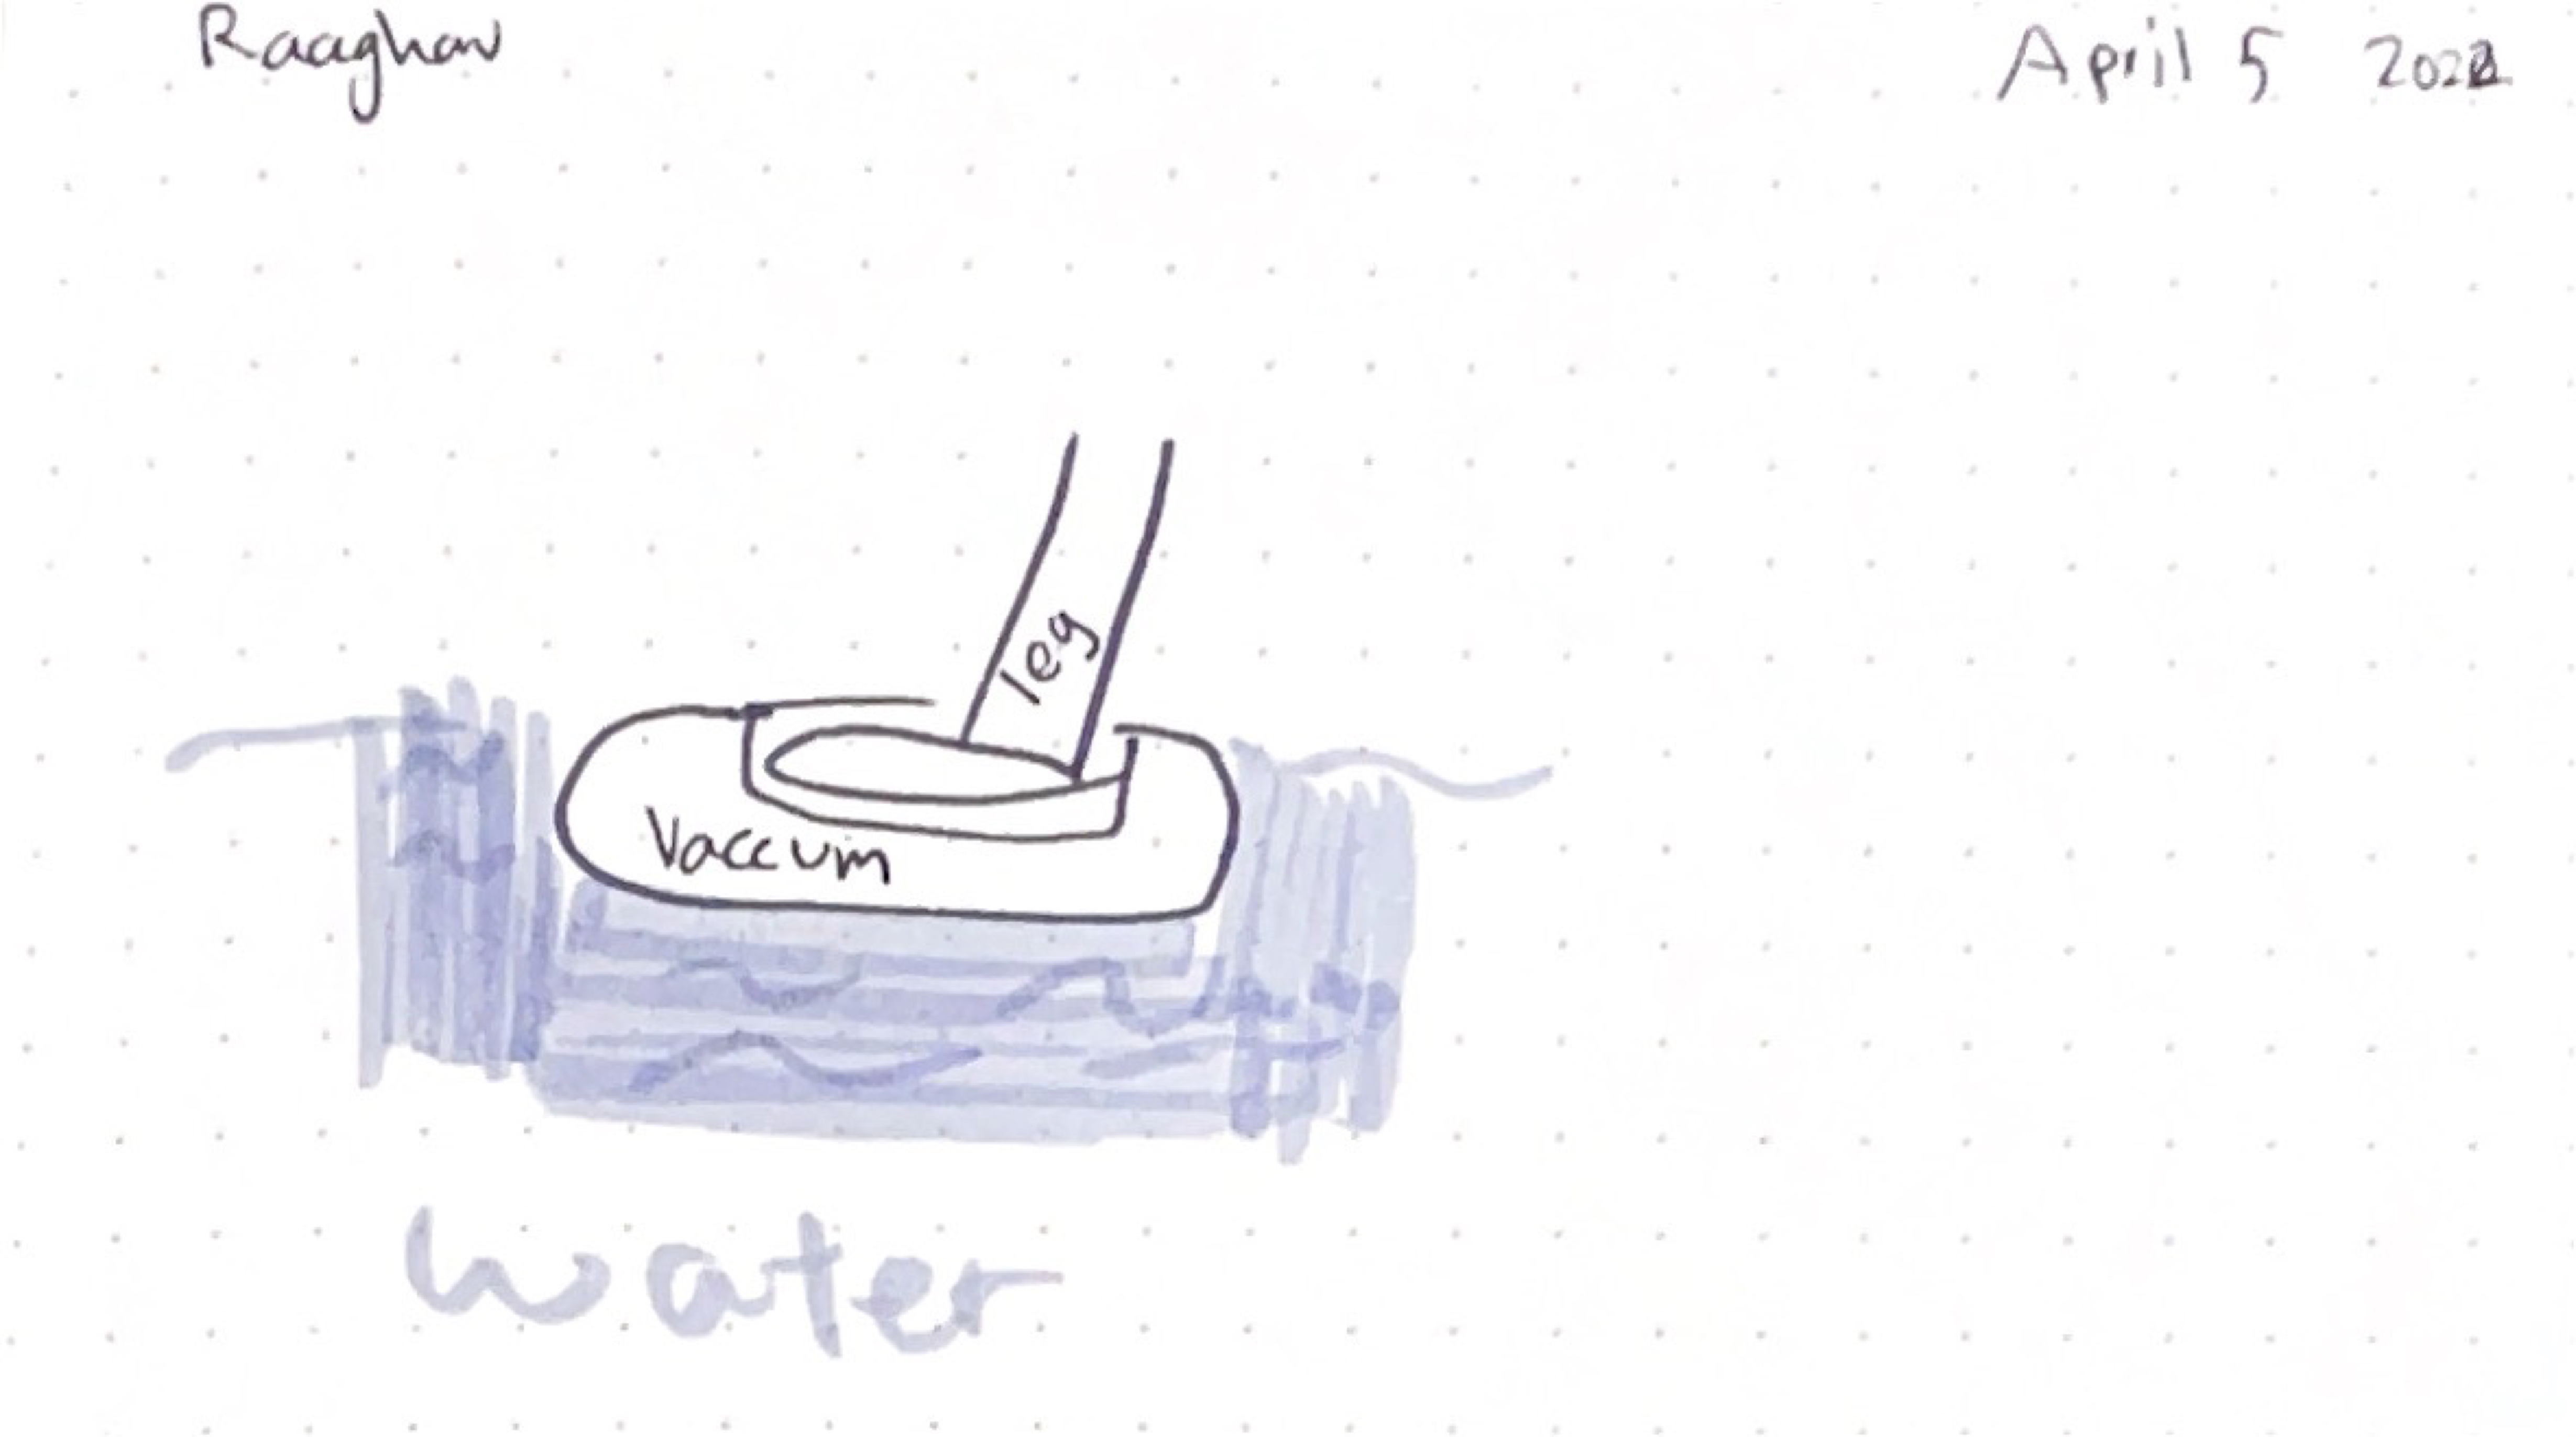 Raaghav
April 5 2022
leg
Vaccum
water